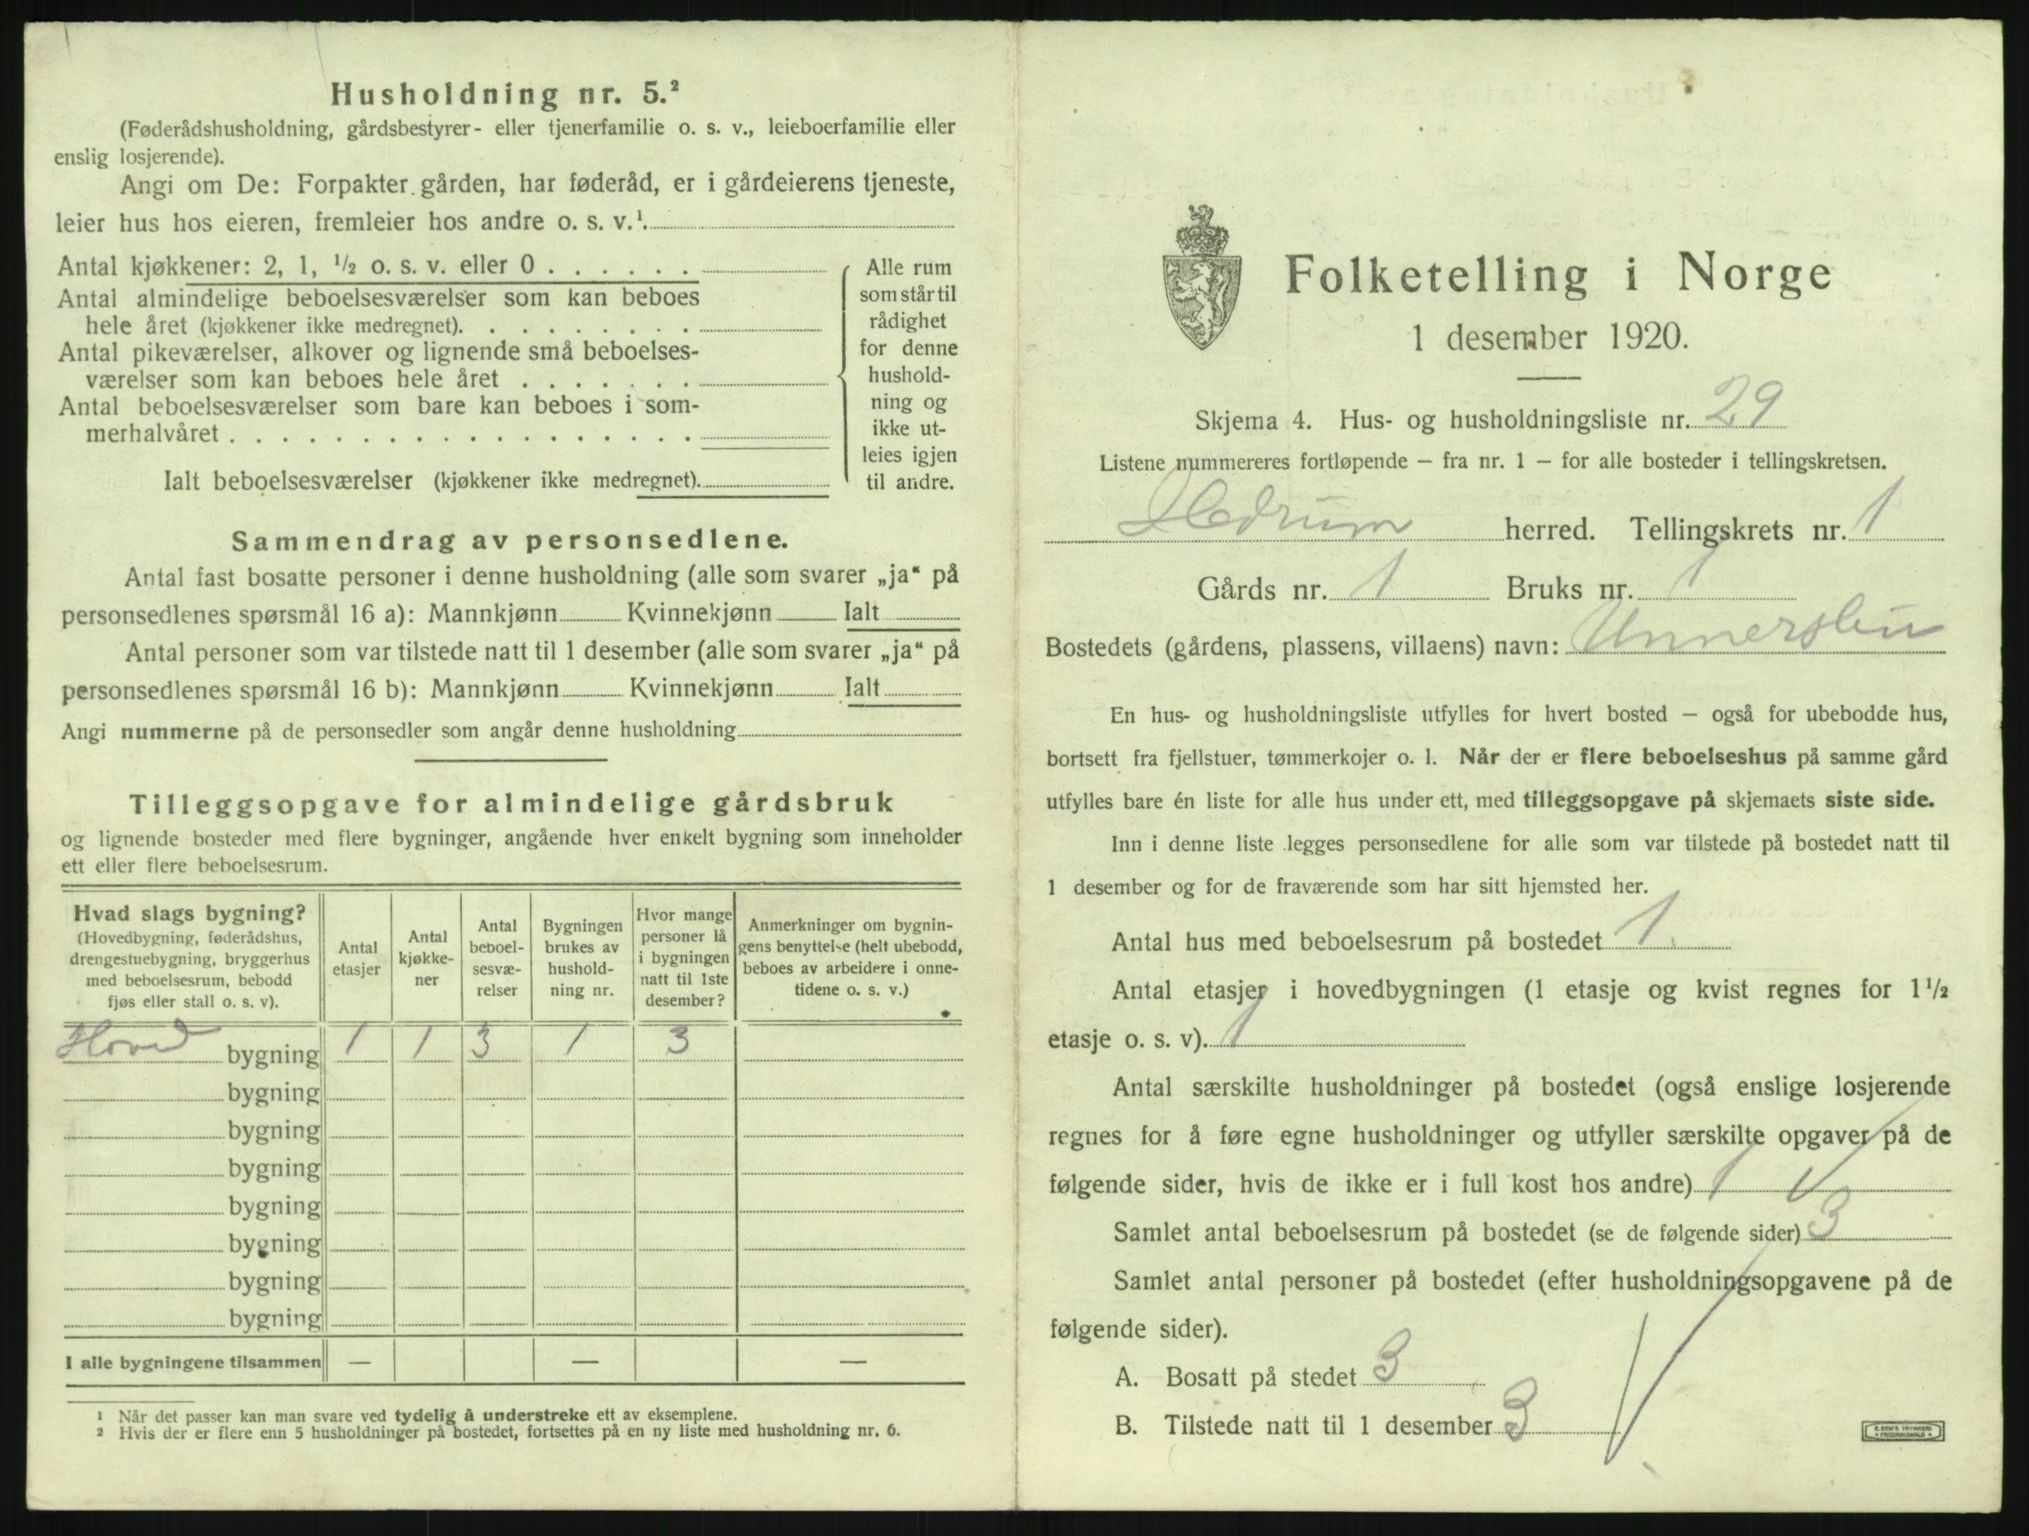 Husholdning nr. 5.²
(Føderådshusholdning, gårdsbestyrer- eller tjenerfamilie o. s. v., leieboerfamilie eller
enslig losjerende).
Angi om De: Forpakter gården, har føderåd, er i gårdeierens tjeneste,
leier hus hos eieren, fremleier hos andre o. s. v.¹.
Antal kjøkkener: 2, 1, ½ o. s. v. eller 0 . . . . . .
Antal almindelige beboelsesværelser som kan beboes
hele året (kjøkkener ikke medregnet). . . . . . . . .
Antal pikeværelser, alkover og lignende små beboelses-
værelser som kan beboes hele året . . . . . . .
Antal beboelsesværelser som bare kan beboes i som-
merhalvåret . . . . . . . . . . . . . . . . . .
Ialt beboelsesværelser (kjøkkener ikke medregnet).
Alle rum
som står til
rådighet
for denne
hushold-
ning og
ikke ut-
leies igjen
til andre.
Sammendrag av personsedlene.
Antal fast bosatte personer i denne husholdning (alle som svarer „ja“ på
personsedlenes spørsmål 16 a): Mannkjønn Kvinnekjønn Ialt
Antal personer som var tilstede natt til 1 desember (alle som svarer „ja“ på
personsedlenes spørsmål 16 b): Mannkjønn Kvinnekjønn Ialt
Angi nummerne på de personsedler som angår denne husholdning
Tilleggsopgave for almindelige gårdsbruk
og lignende bosteder med flere bygninger, angående hver enkelt bygning som inneholder
ett eller flere beboelsesrum.
Hvad slags bygning?
(Hovedbygning, føderådshus,
drengestuebygning, bryggerhus
med beboelsesrum, bebodd
fjøs eller stall o. s. v).
Antal
etasjer
Antal
kjøkke-
ner
Antal
beboel-
sesvæ-
relser
Bygningen
brukes av
hushold-
ning nr.
Hvor mange
personer lå
i bygningen
natt til 1ste
desember?
Anmerkninger om bygnin-
gens benyttelse (helt ubebodd,
beboes av arbeidere i onne-
tidene o. s. v.)
Hoved bygning 1 1 3 1 3
bygning
bygning
bygning
bygning
bygning
bygning
bygning
I alle bygningene tilsammen — — —
¹ Når det passer kan man svare ved tydelig å understreke ett av eksemplene.
² Hvis der er flere enn 5 husholdninger på bostedet, fortsettes på en ny liste med husholdning nr. 6.
Folketelling i Norge
1 desember 1920.
Skjema 4. Hus- og husholdningsliste nr. 29
Listene nummereres fortløpende – fra nr. 1 – for alle bosteder i tellingskretsen.
Hedrum herred. Tellingskrets nr. 1
Gårds nr. 1 Bruks nr. 1
Bostedets (gårdens, plassens, villaens) navn:
En hus- og husholdningsliste utfylles for hvert bosted – også for ubebodde hus,
bortsett fra fjellstuer, tømmerkojer o. l. Når der er flere beboelseshus på samme gård
utfylles bare én liste for alle hus under ett, med tilleggsopgave på skjemaets siste side.
Inn i denne liste legges personsedlene for alle som var tilstede på bostedet natt til
1 desember og for de fraværende som har sitt hjemsted her.
Antal hus med beboelsesrum på bostedet 1.
Antal etasjer i hovedbygningen (1 etasje og kvist regnes for 1½
etasje o. s. v). 1
Antal særskilte husholdninger på bostedet (også enslige losjerende
regnes for å føre egne husholdninger og utfyller særskilte opgaver på de
følgende sider, hvis de ikke er i full kost hos andre) 1
Samlet antal beboelsesrum på bostedet (se de følgende sider) 3
Samlet antal personer på bostedet (efter husholdningsopgavene på de
følgende sider).
A. Bosatt på stedet 3
B. Tilstede natt til 1 desember 3